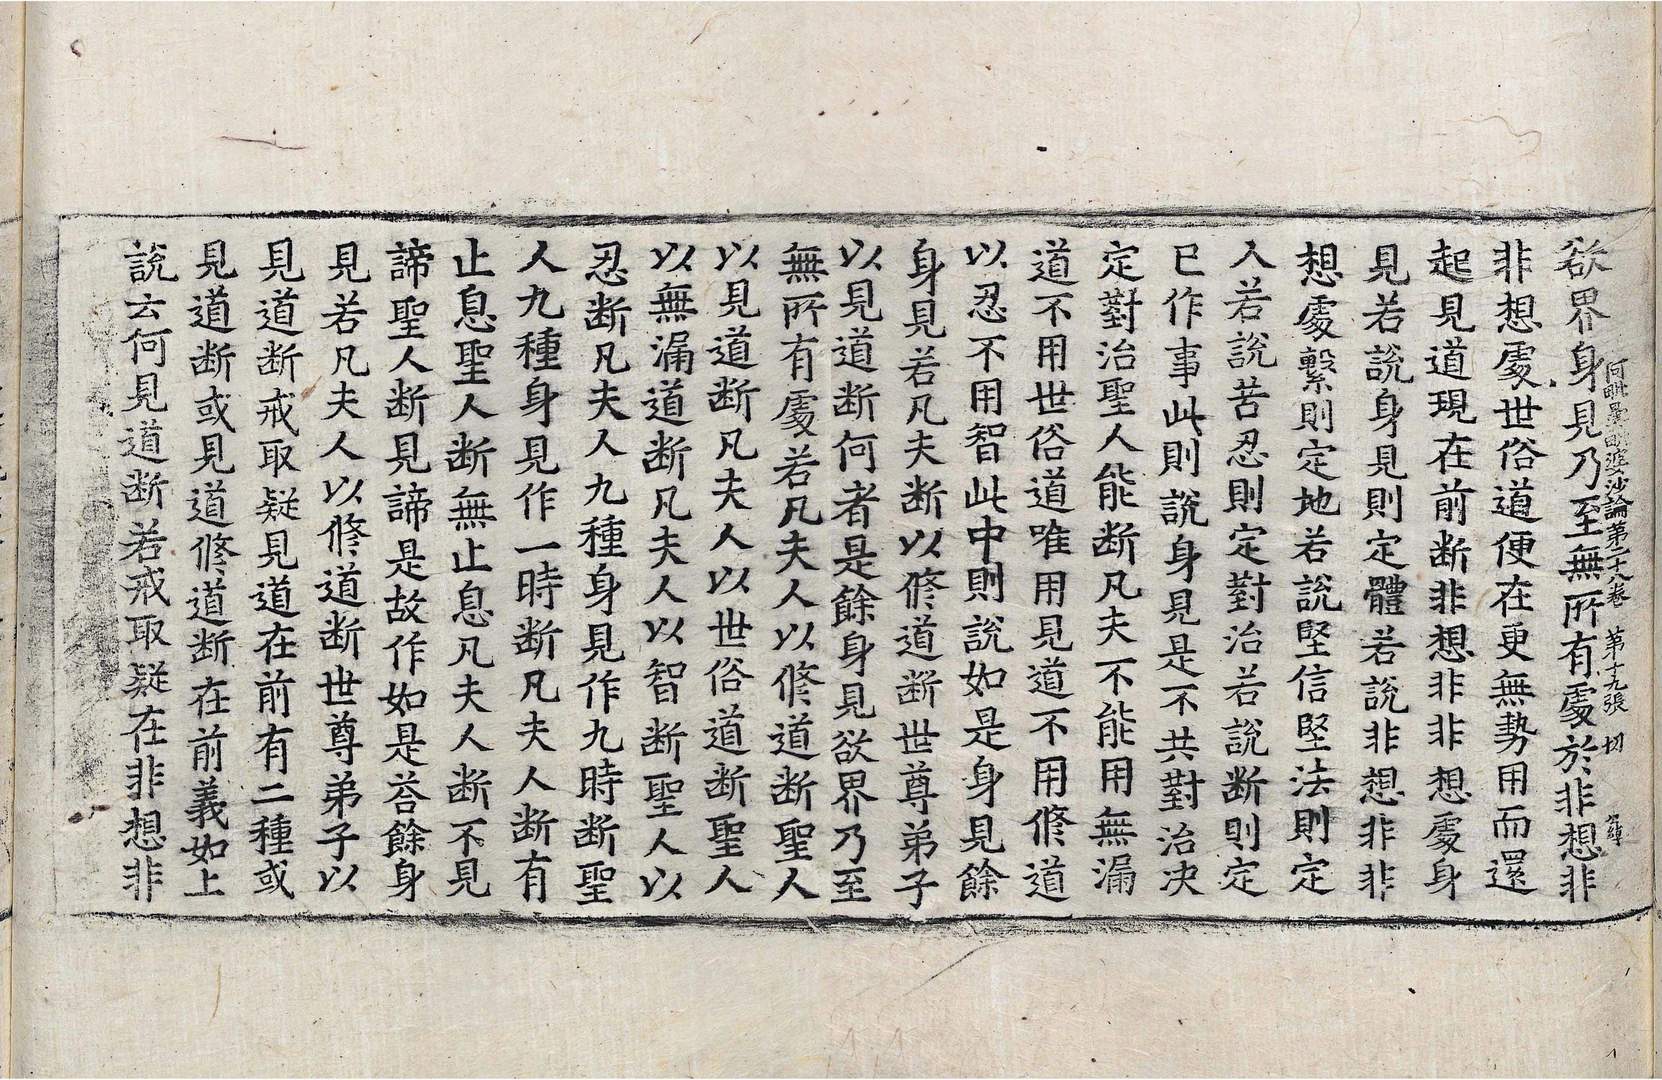 阿毗曇毗婆沙論第二十八卷 第十九張 切
欲界身見乃至無所有處於非想非
非想處世俗道便在更無勢用而還
起見道現在前断非想非非想處身
見若說身見則定體若說非想非非
想處繫則定地若說堅信堅法則定
人若說苦忍則定對治若說断則定
已作事此則說身見是不共對治决
定對治聖人能断凡夫不能用無漏
道不用世俗道唯用見道不用修道
以忍不用智此中則說如是身見餘
身見若凡夫断以修道断世尊弟子
以見道断何者是餘身見欲界乃至
無所有處若凡夫人以修道断聖人
以見道断凡夫人以世俗道断聖人
以無漏道断凡夫人以智断聖人以
忍断凡夫人九種身見作九時断聖
人九種身見作一時断凡夫人断有
止息聖人断無止息凡夫人断不見
諦聖人断見諦是故作如是荅餘身
見若凡夫人以修道断世尊弟子以
見道断戒取疑見道在前有二種或
見道断或見道修道断在前義如上
說云何見道断若戒取疑在非想非